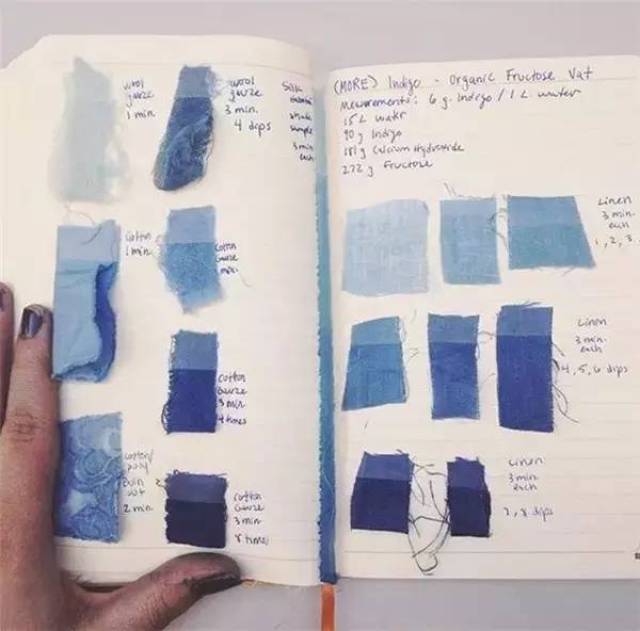 wool
gauze
1 min
wool
gauze
3 min.
4 dips
Silk
sample
3 min
each
cotton
1 min.
cotton
gauze
min.
cotton
gauze
3 min
4 times
cotton/
poly
vat
2 min
cotton
gauze
3 min
8 times
(MORE) Indigo - Organic Fructose Vat
Measurements: 6 g. Indigo / 1 L water
15 L water
90 g Indigo
181 g Calcium Hydroxide
272 g Fructose
Linen
3 min.
each
1, 2, 3
Linen
3 min.
each
4, 5, 6 dips
Linen
3 min
each
7, 8 dips